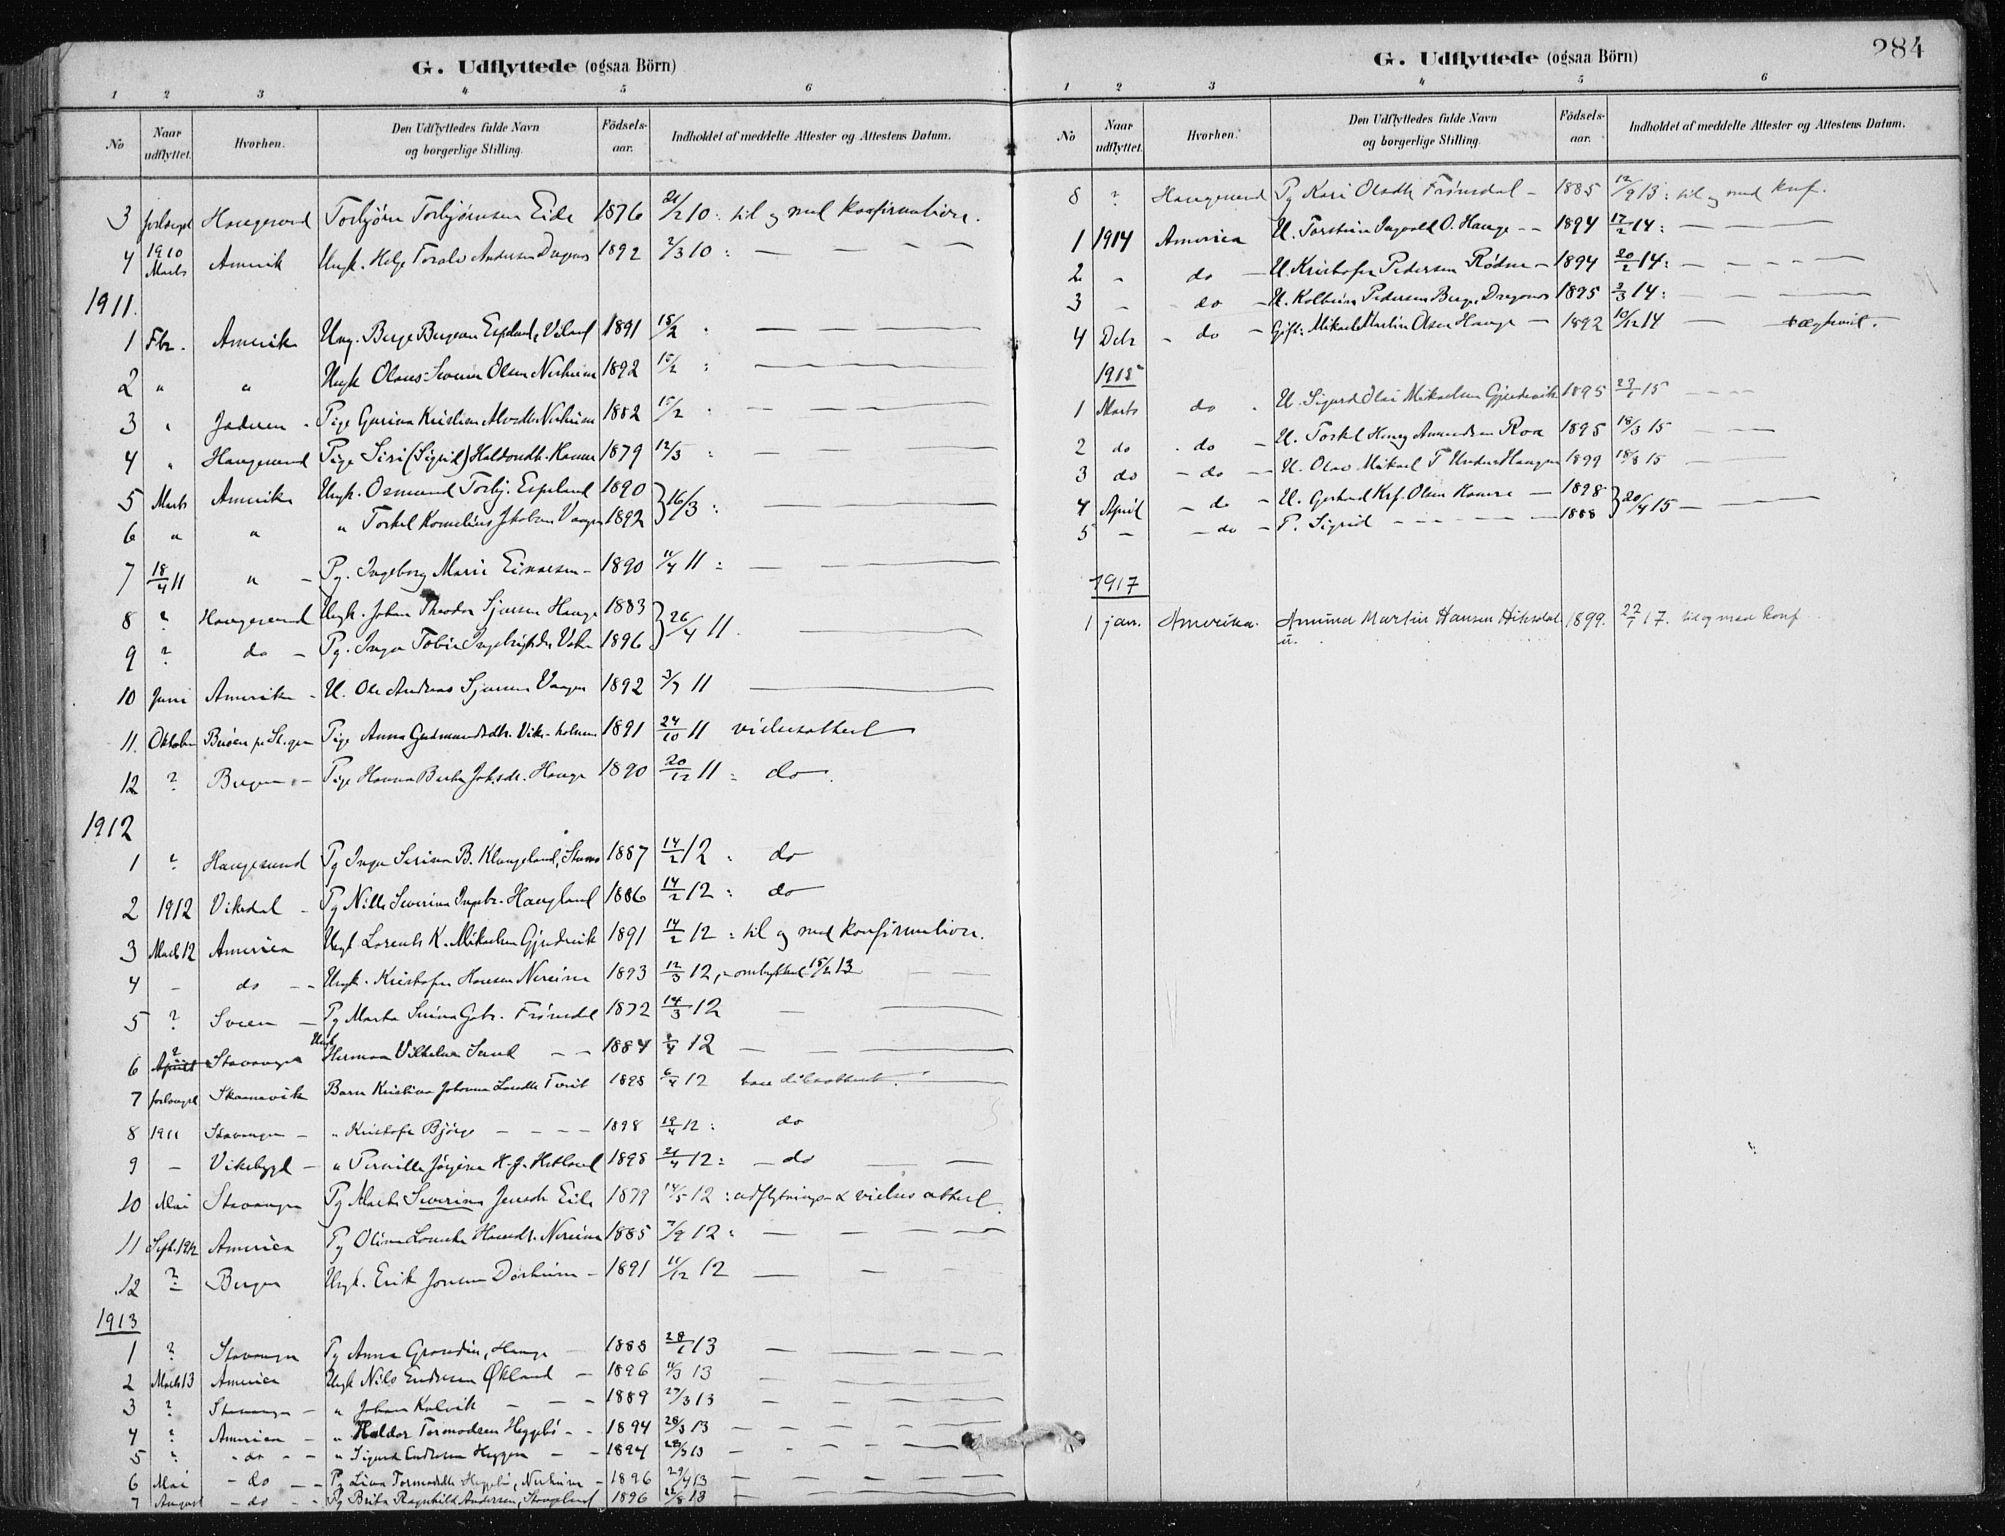 G. Udflyttede (ogsaa Börn)
1 2 3 4 5 6
No Naar udflyttet. Hvorhen. Den Udflyttedes fulde Navn og borgerlige Stilling. Födsels-aar. Indholdet af meddelte Attester og Attestens Datum.
3 Haugesund Torbjörn Torbjörnsen Eide 1876 /2 10: til og med konfirmation.
4 1910 Marts Amerik Ungk. Helge Toralv Andersen 1892 2/3 10: —
1911.
1 Fbr. Amerika Ung. Berge Bergesen Espland, 1891 15/2 —
2 " " Ungk Olaus Severin Olsen Nerheim 1892 15/2 : —
3 " Jæderen Pige Gurina Kristine Nerheim 1882 15/2 —
4 " Haugesund Pige Siri (Sigrid) Haldorsdtr. Hamre 1879 12/3 : —
5 Marts Amerika Ungk. Osmund Torbj. Espeland 1890 } 16/3 : —
6 " " " Torkel Kornelius Jakobsen Vaagen 1892
7 18/4 11 " – Pg. Ingeborg Marie Einarsen – 1890 11/4 11 : —
8 ? Haugesund Ungk. Johan Theodor Sjursen Hauge 1883 } 26/4 11. —
9 ? do – Pg. Inga Tobie 1896
10 Juni Amerika – U. Ole Andreas Sjursen Vaagen 1892 3/7 11 —
11. Oktober Pige Anna Gudmundsdtr. Vik 1891 24/10 11 vielsesattest
12 ? Bergen – Pige Hanna Hauge 1890 20/12 11 : do.
1912
1 ? Haugesund Pg Inga Serina B. Klungeland, 1887 14/2 12 : do
2 1912 Vikedal – Pg Nille Severina Ingebr. Haugland 1886 14/2 12 : do
3 Marts 12 America Ungk Lorents K. Mikaelsen Gjerdevik 1891 14/2 12 : til og med konfirmation.
4 – do – – Ungk. Kristofer Hansen Nereim 1893 12/3 12, – ombyttet 15/2 13 — —
5 ? Sveen – Pg Marta Serina Gabr. Frönsdal 1872 14/3 12 — —
6 ? Stavanger Ungk Herman Vilhelm Sund – – 1884 2/4 12 — —
7 Skaanevik Barn Kristine Johanne Tveit 1898 6/4 12 bare daabsattest. —
8 1911 Stavanger – " Kristofer Bjørge – – – – 1898 19/4 12 : do
9 – Vikebygd – " Pernille Jörgine Hetland 1898 21/4 12 : – do — —
10 Mai Stavanger Pg Marta Severine Jensdtr Eide 1879 14/5 12 : udflytnings- & vielsesattest.
11 Sept. 1912 America Pg Oline Hansdtr. Nereim 1885 7/9 12 : —
12 ? Bergen Ungk. Erik Jonsen Dörheim – 1891 11/12 12 —
1913
1 ? Stavanger Pg Anna Grondin, Hauge – 1888 28/1 13 —
2 Marts 13 America Ungk Nils Endresen Økland – 1896 11/3 13 —
3 ? Stavanger – " Johan Kalvik – – – 1889 27/3 13 —
4 ? America – " Haldor Tormodsen Heggebø – – 1894 28/3 13 —
5 ? – do – – " Sigurd Endresen Heggen – – 1894 28/3 13 —
6 Mai – do – – Pg Lina Tormodsdtr Heggebø, Nerheim – 1896 29/4 13 —
7 August – do – – Pg Brita Ragnhild Andersen, Stangeland 1896 /8 13 —
284
G. Udflyttede (ogsaa Börn)
1 2 3 4 5 6
No Naar udflyttet. Hvorhen. Den Udflyttedes fulde Navn og borgerlige Stilling. Födsels-aar. Indholdet af meddelte Attester og Attestens Datum.
8 ? Haugesund Pg Kari Olsdtr Frönsdal – 1885 12/9 13 : til og med konf.
1 1914 America U. Torstein Ingvald O. Hauge – – 1894 12/2 14 : —
2 – do – U. Kristofer Pedersen Rödne – 1894 20/2 14 : —
3 – – do – U. Kolbein Pedersen Berge, 1895 2/3 14 : —
4 Debr – do – Gift: Mikael Martin Olsen Hauge – 1892 10/12 14 —
1915
1 Marts do . U. Sigurd Olai Mikaelsen Gjerdevik 1895 23/1 15 – – –
2 do . do – U. Torkel Henry Amundsen Roa 1895 18/3 15 – —
3 do – do – U. Olav Mikael T. Haugen 1899 18/3 15 – —
4 April – do – U. Gerhard Krf. Olsen Hamre – 1898 } 20/4 15 – —
5 – – do – P. Sigrid – – – – – – 1888
1917
1 jan. Amerika. Amund Martin Hansen Hiksdal u. 1899. 22/1 17. til og med konf.